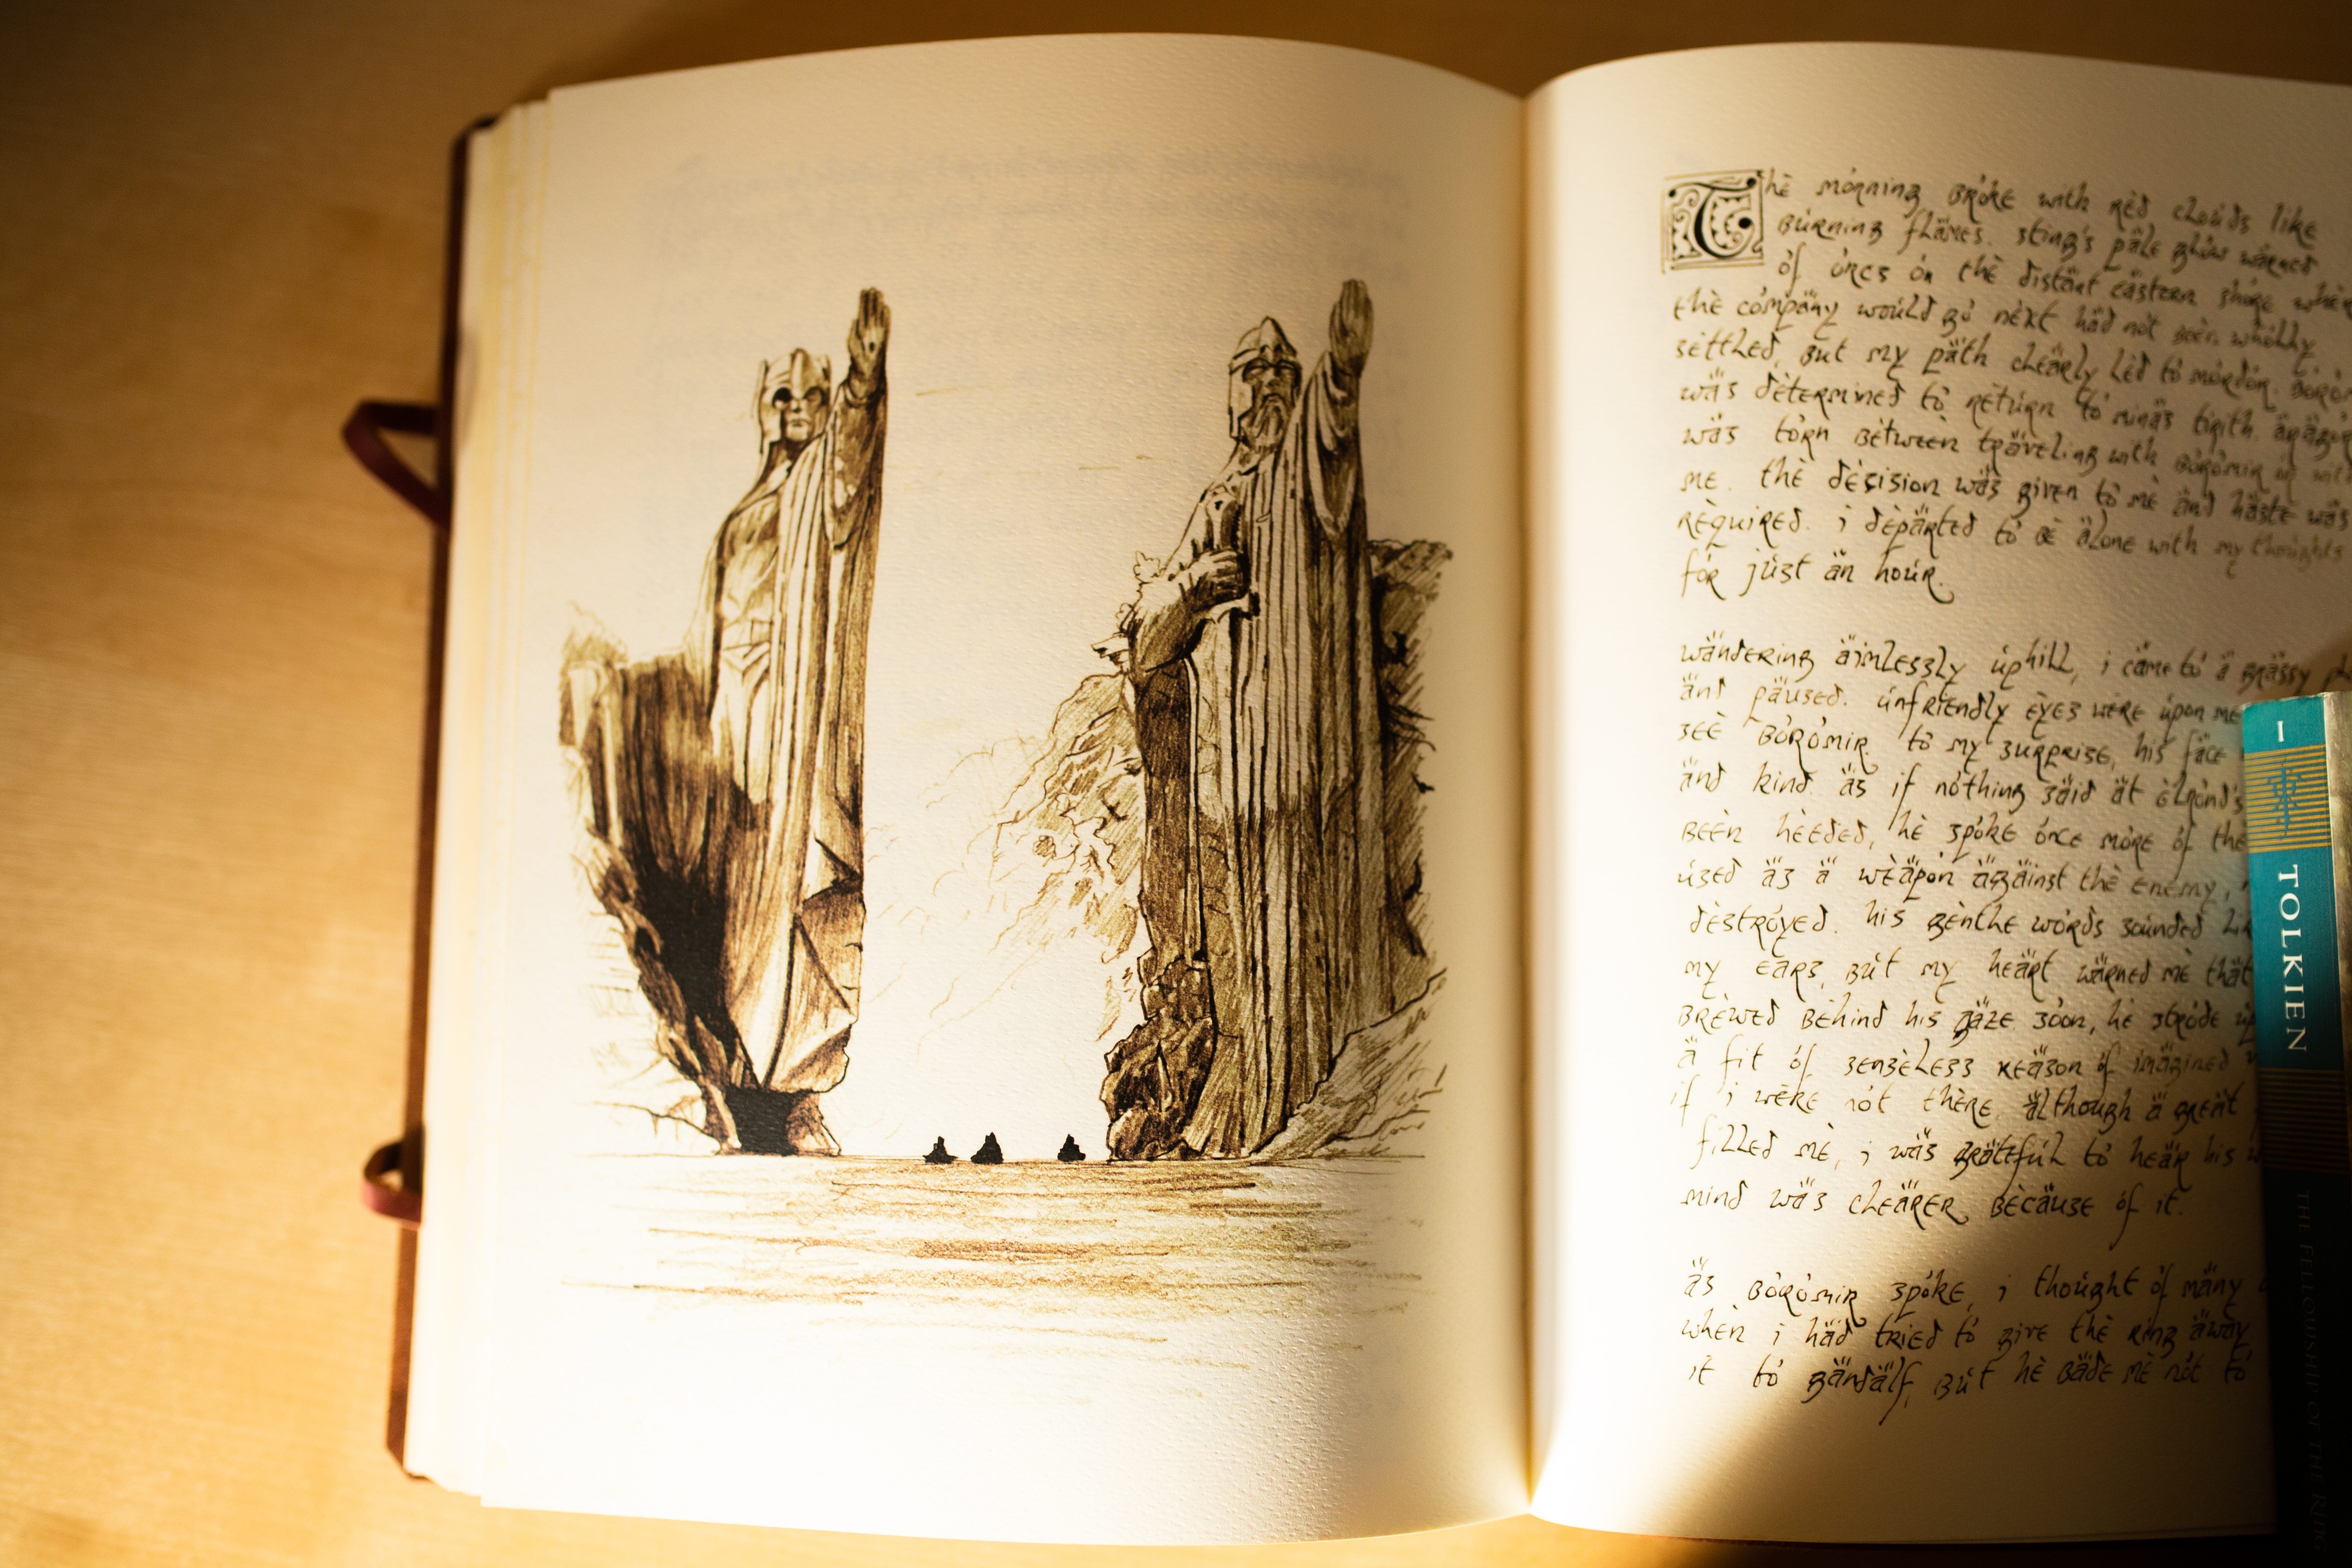 The morning broke with red clouds like
burning flames. Sting's pale glow warned
of orcs on the distant eastern shore. where
the company would go next had not been wholly
settled, but my path clearly led to mordor.
was determined to return to minas tirith.
was torn between traveling with boromir or with
me. the decision was given to me and haste was
required. i departed to be alone with my thoughts
for just an hour.
wandering aimlessly uphill, i came to a grassy
and paused. unfriendly eyes were upon me
see boromir. to my surprise, his face
and kind as if nothing said at elrond's
been heeded, he spoke once more of the
used as a weapon against the enemy,
destroyed. his gentle words sounded
my ears, but my heart warned me that
brewed behind his gaze. soon, he strode
a fit of senseless reason of imagined
if i were not there. although a great
filled me, i was grateful to hear his
mind was clearer because of it.
as boromir spoke, i thought of many
when i had tried to give the ring away
it to gandalf, but he bade me not to
I
TOLKIEN
THE FELLOWSHIP OF THE RING